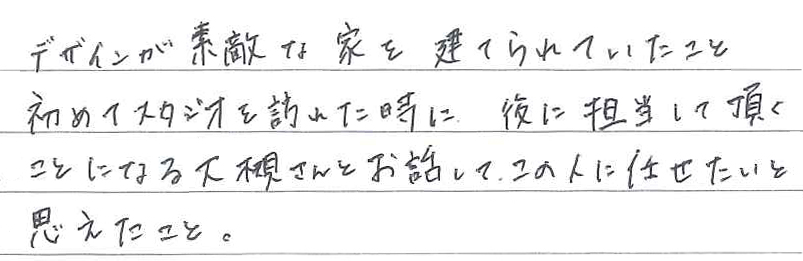 デザインが素敵な家を建てられていたこと
初めてスタジオを訪れた時に、後に担当して頂く
ことになる大槻さんとお話して、この人に任せたいと
思えたこと。